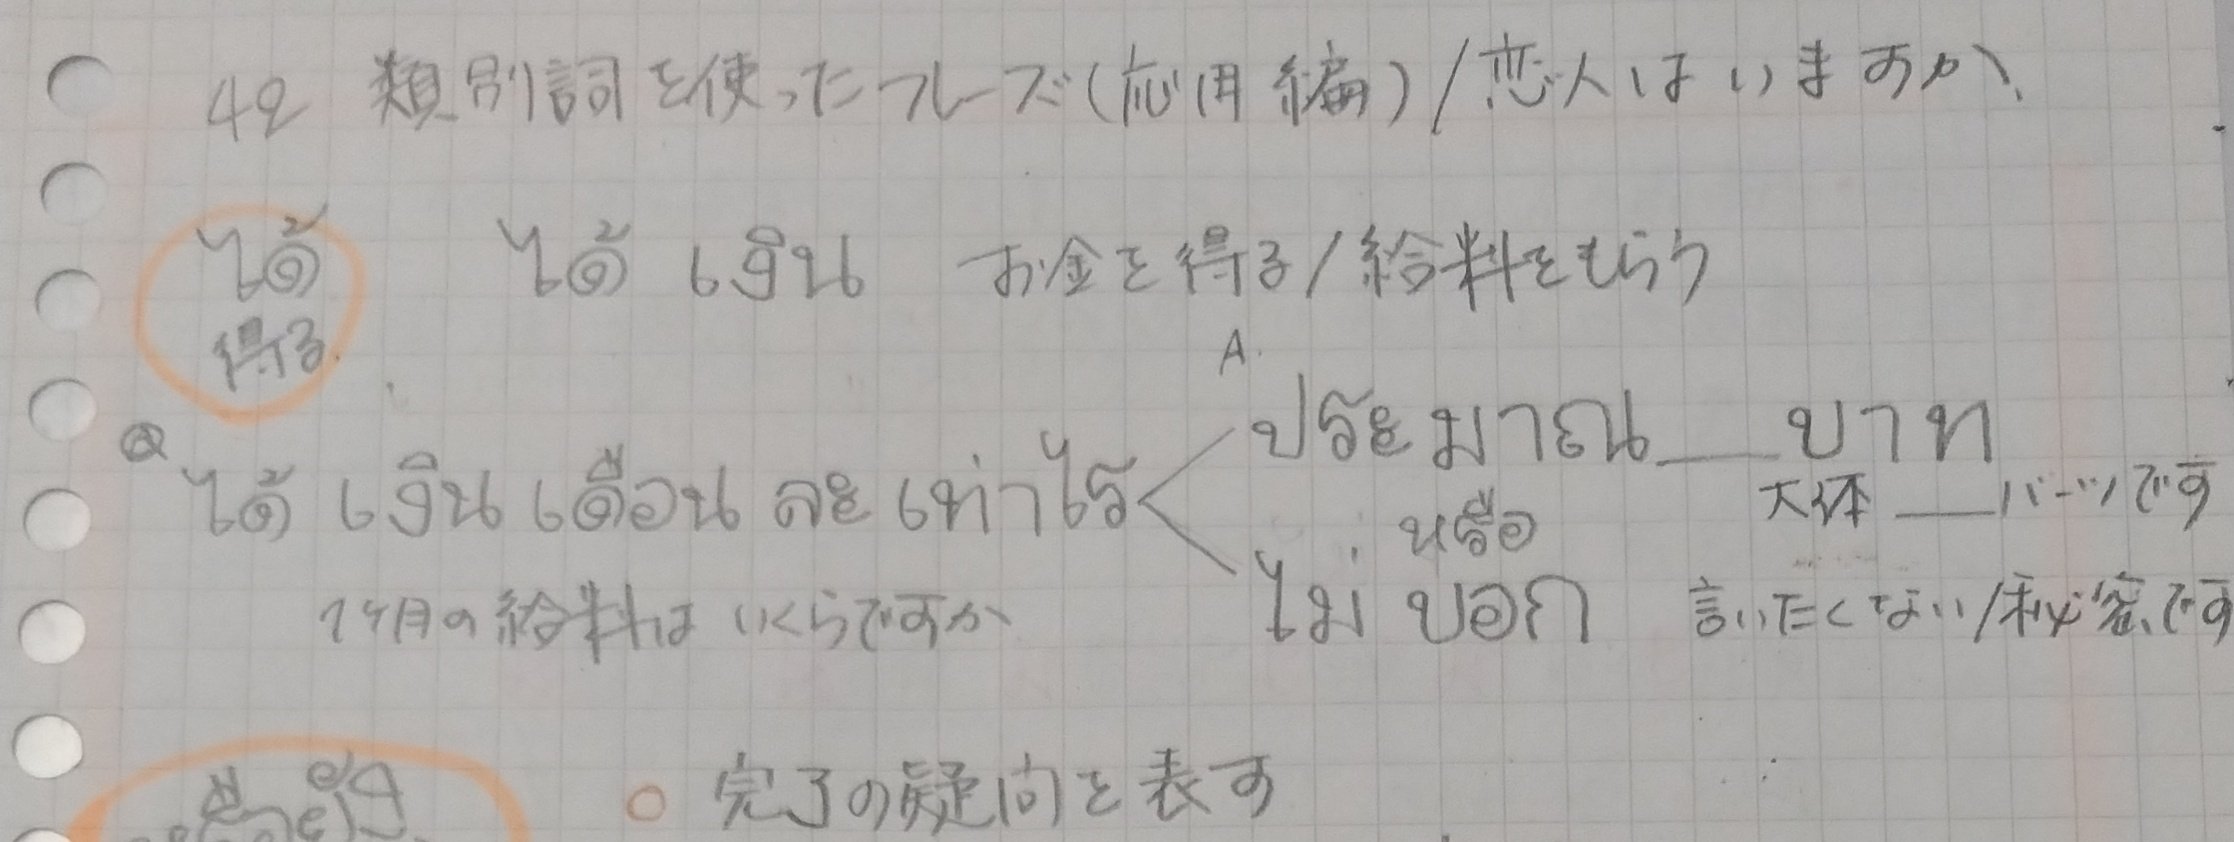 42 類別詞を使ったフレーズ(応用編)/恋人はいますか、
ได้ ได้ เงิน お金を得る/給料をもらう
得る
A.
Q ได้ เงิน เดือน ละ เท่าไร ประมาณ__บาท
大体__バーツです
หรือ
1ヶ月の給料はいくらですか
ไม่ บอก 言いたくない/秘密です
○ 完了の疑問を表す